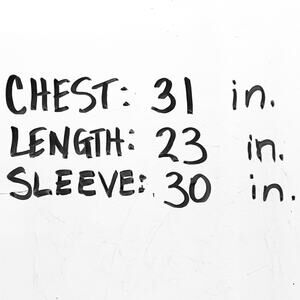 CHEST: 31 in.
LENGTH: 23 in.
SLEEVE: 30 in.